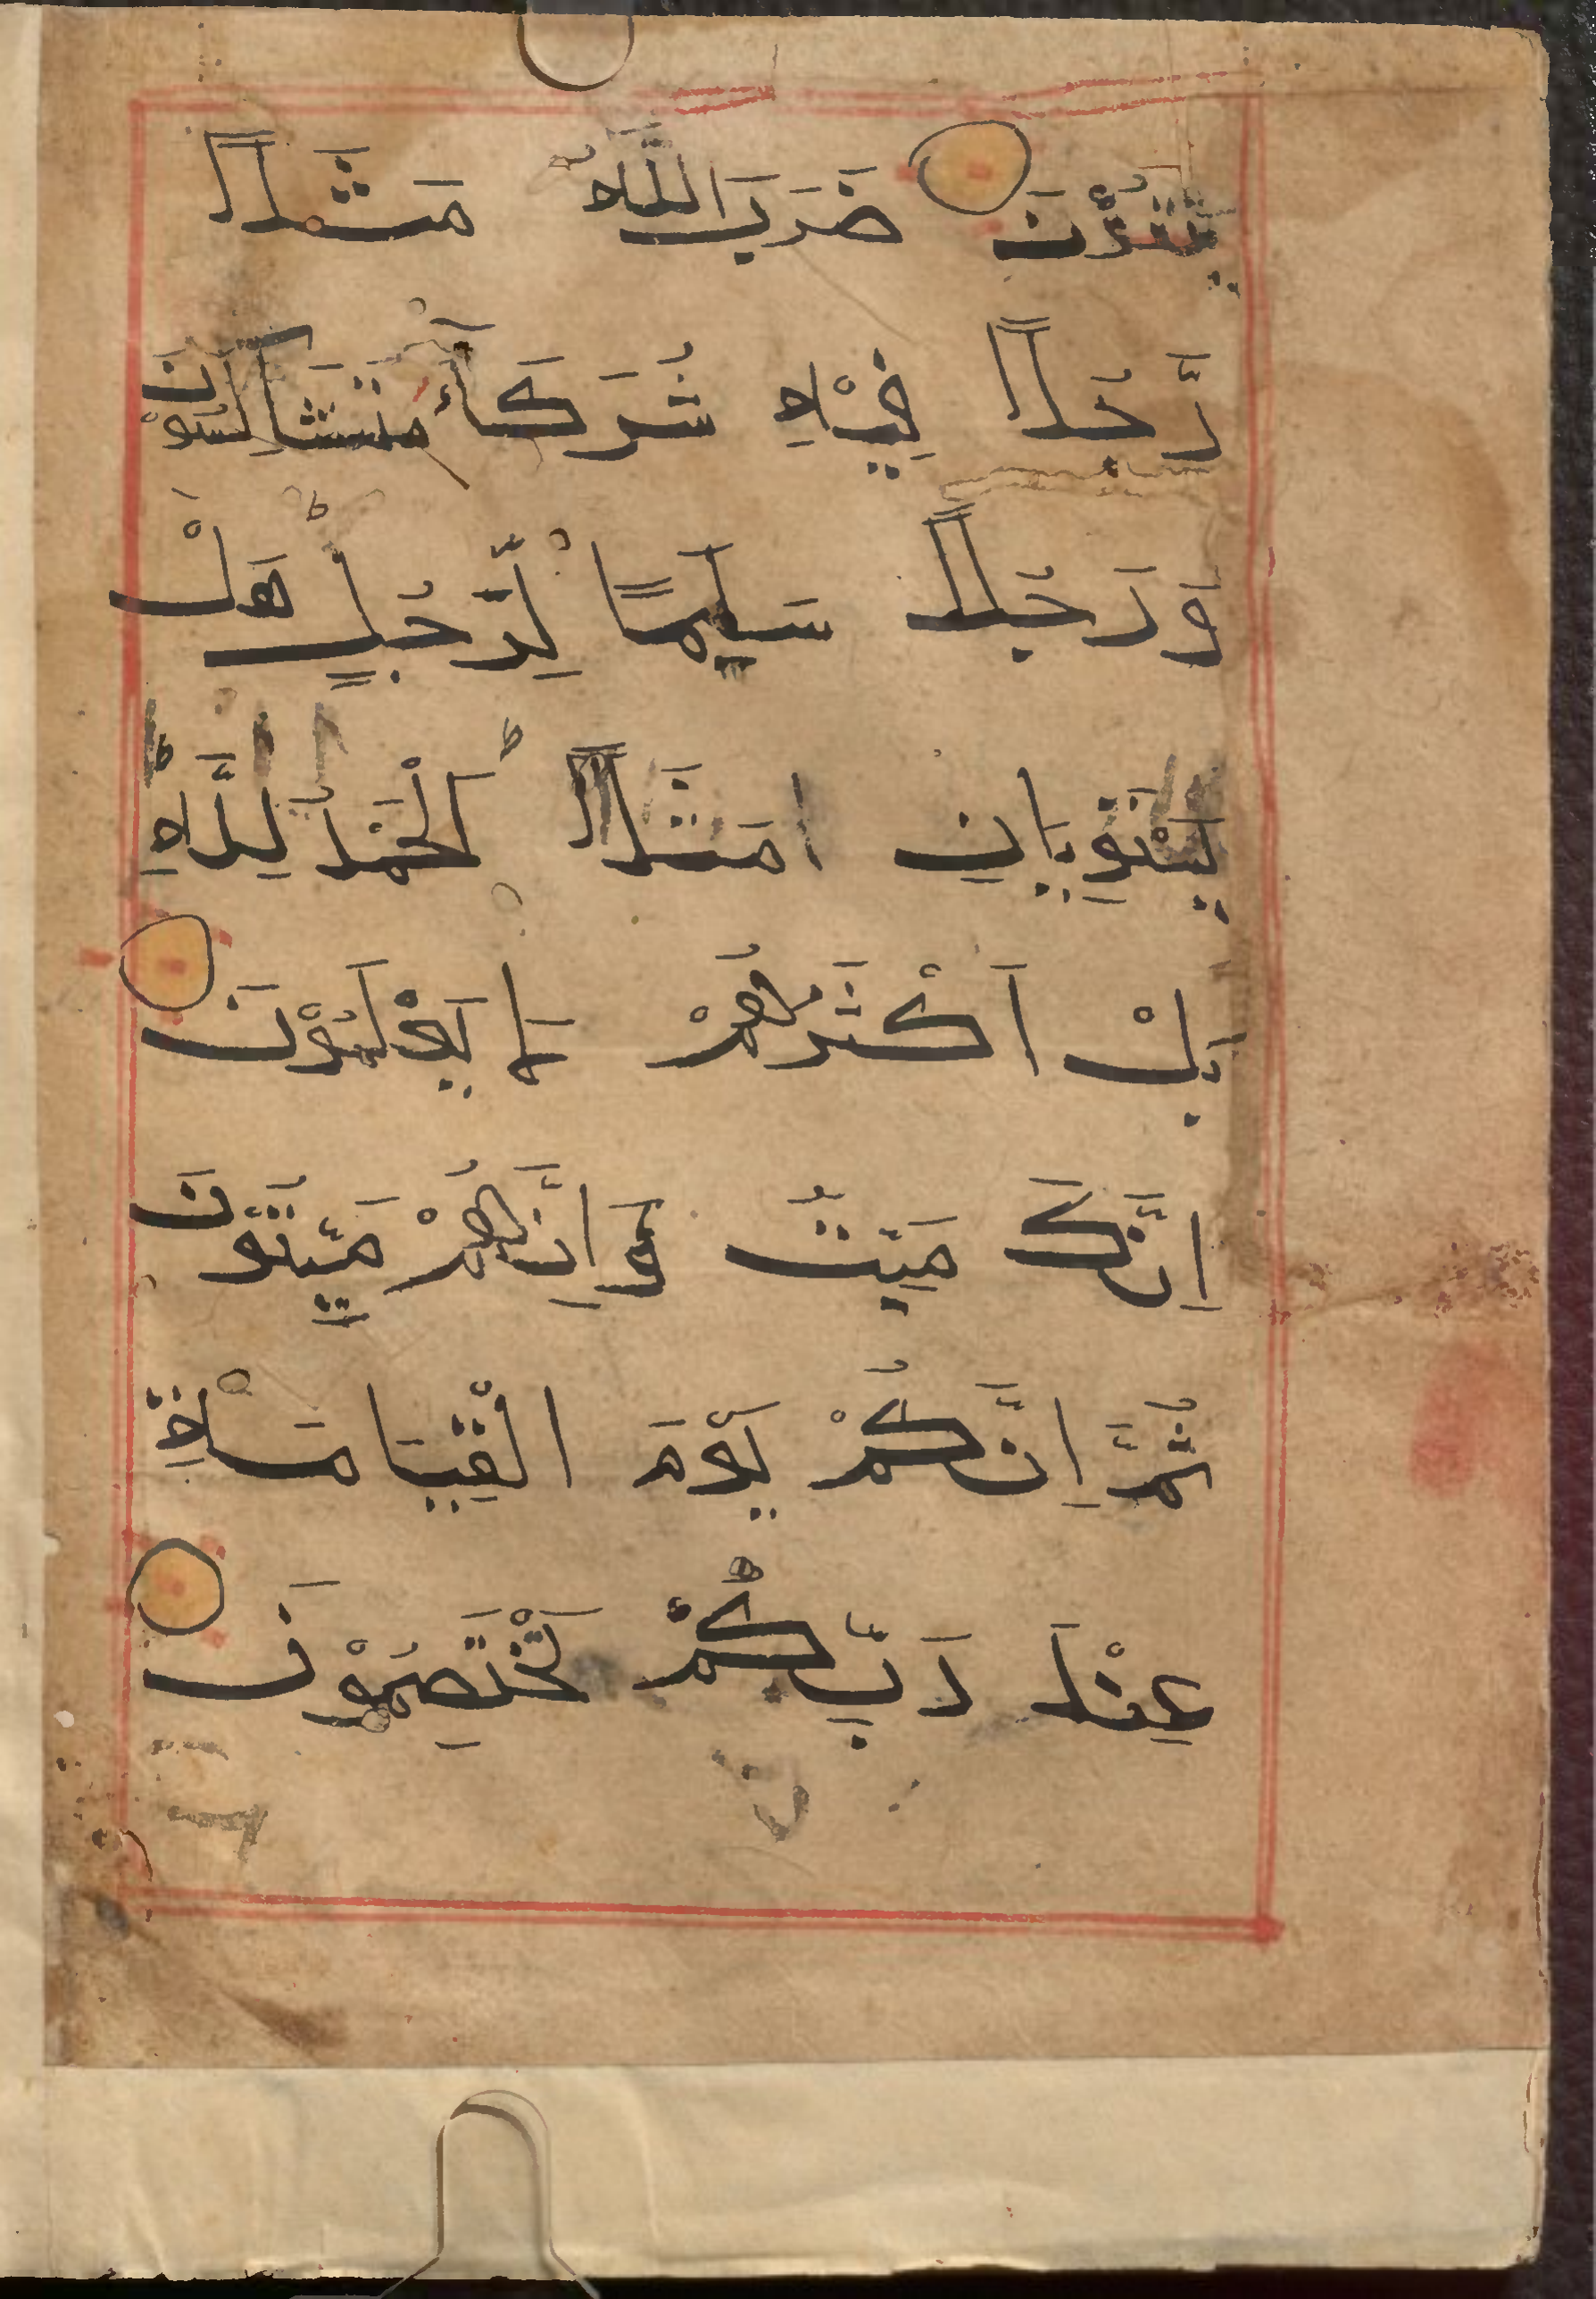 يَتَّقُوْنَ ضَرَبَ اللّٰهُ مَثَلًا
رَّجُلًا فِيْهِ شُرَكَآءُ مُتَشَاكِسُوْنَ
وَ رَجُلًا سَلَمًا لِّرَجُلٍ ؕ هَلْ
يَسْتَوِيَانِ مَثَلًا ؕ اَلْحَمْدُ لِلّٰهِ ؕ
بَلْ اَكْثَرُهُمْ لَا يَعْلَمُوْنَ
اِنَّكَ مَيِّتٌ وَ اِنَّهُمْ مَّيِّتُوْنَ
ثُمَّ اِنَّكُمْ يَوْمَ الْقِيَامَةِ
عِنْدَ رَبِّكُمْ تَخْتَصِمُوْنَ